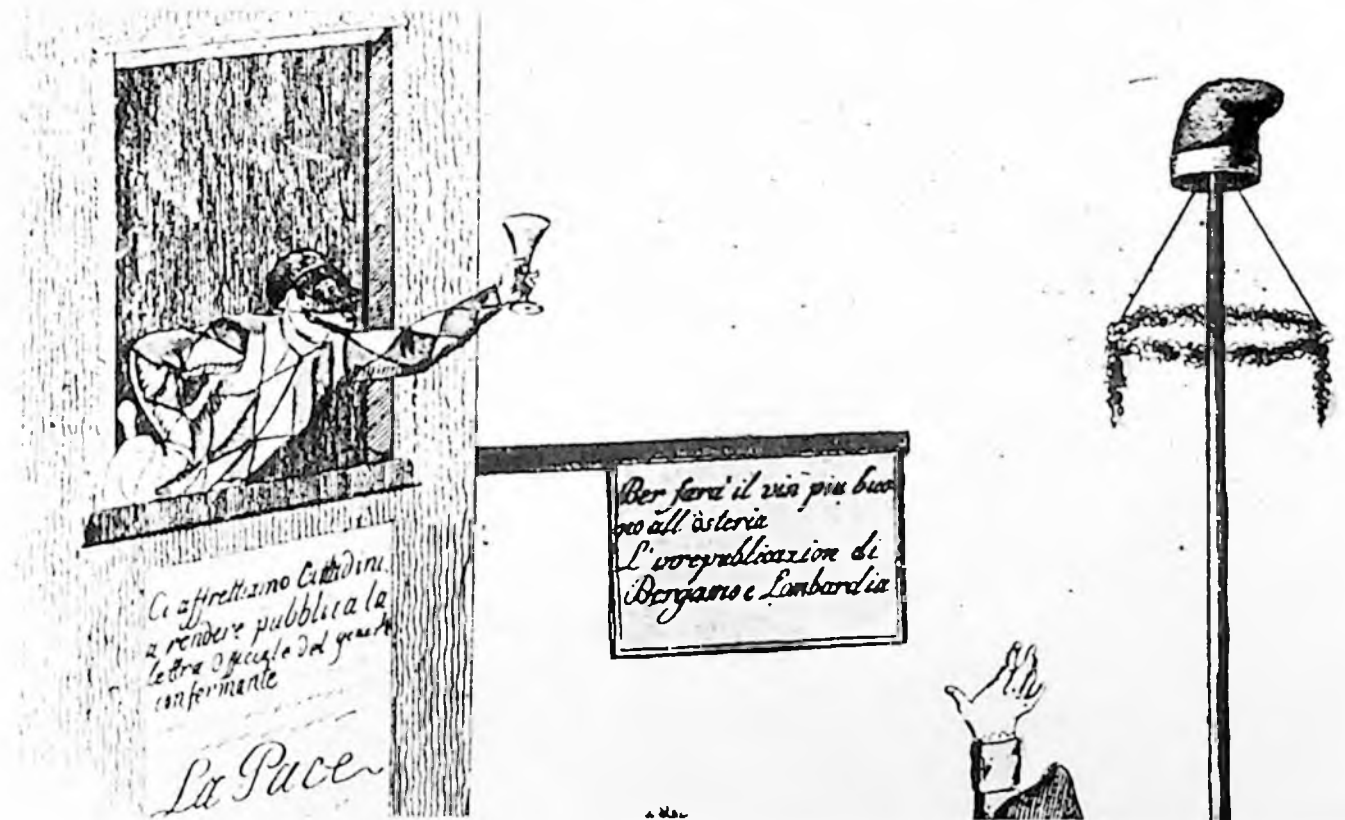 Ci affrettiamo Cittadini
a rendere pubblica la
lettra Officiale del
confermante
La Pace
Ber fara' il vin piu buo
no all' osteria
L' di
Bergamo e Lombardia